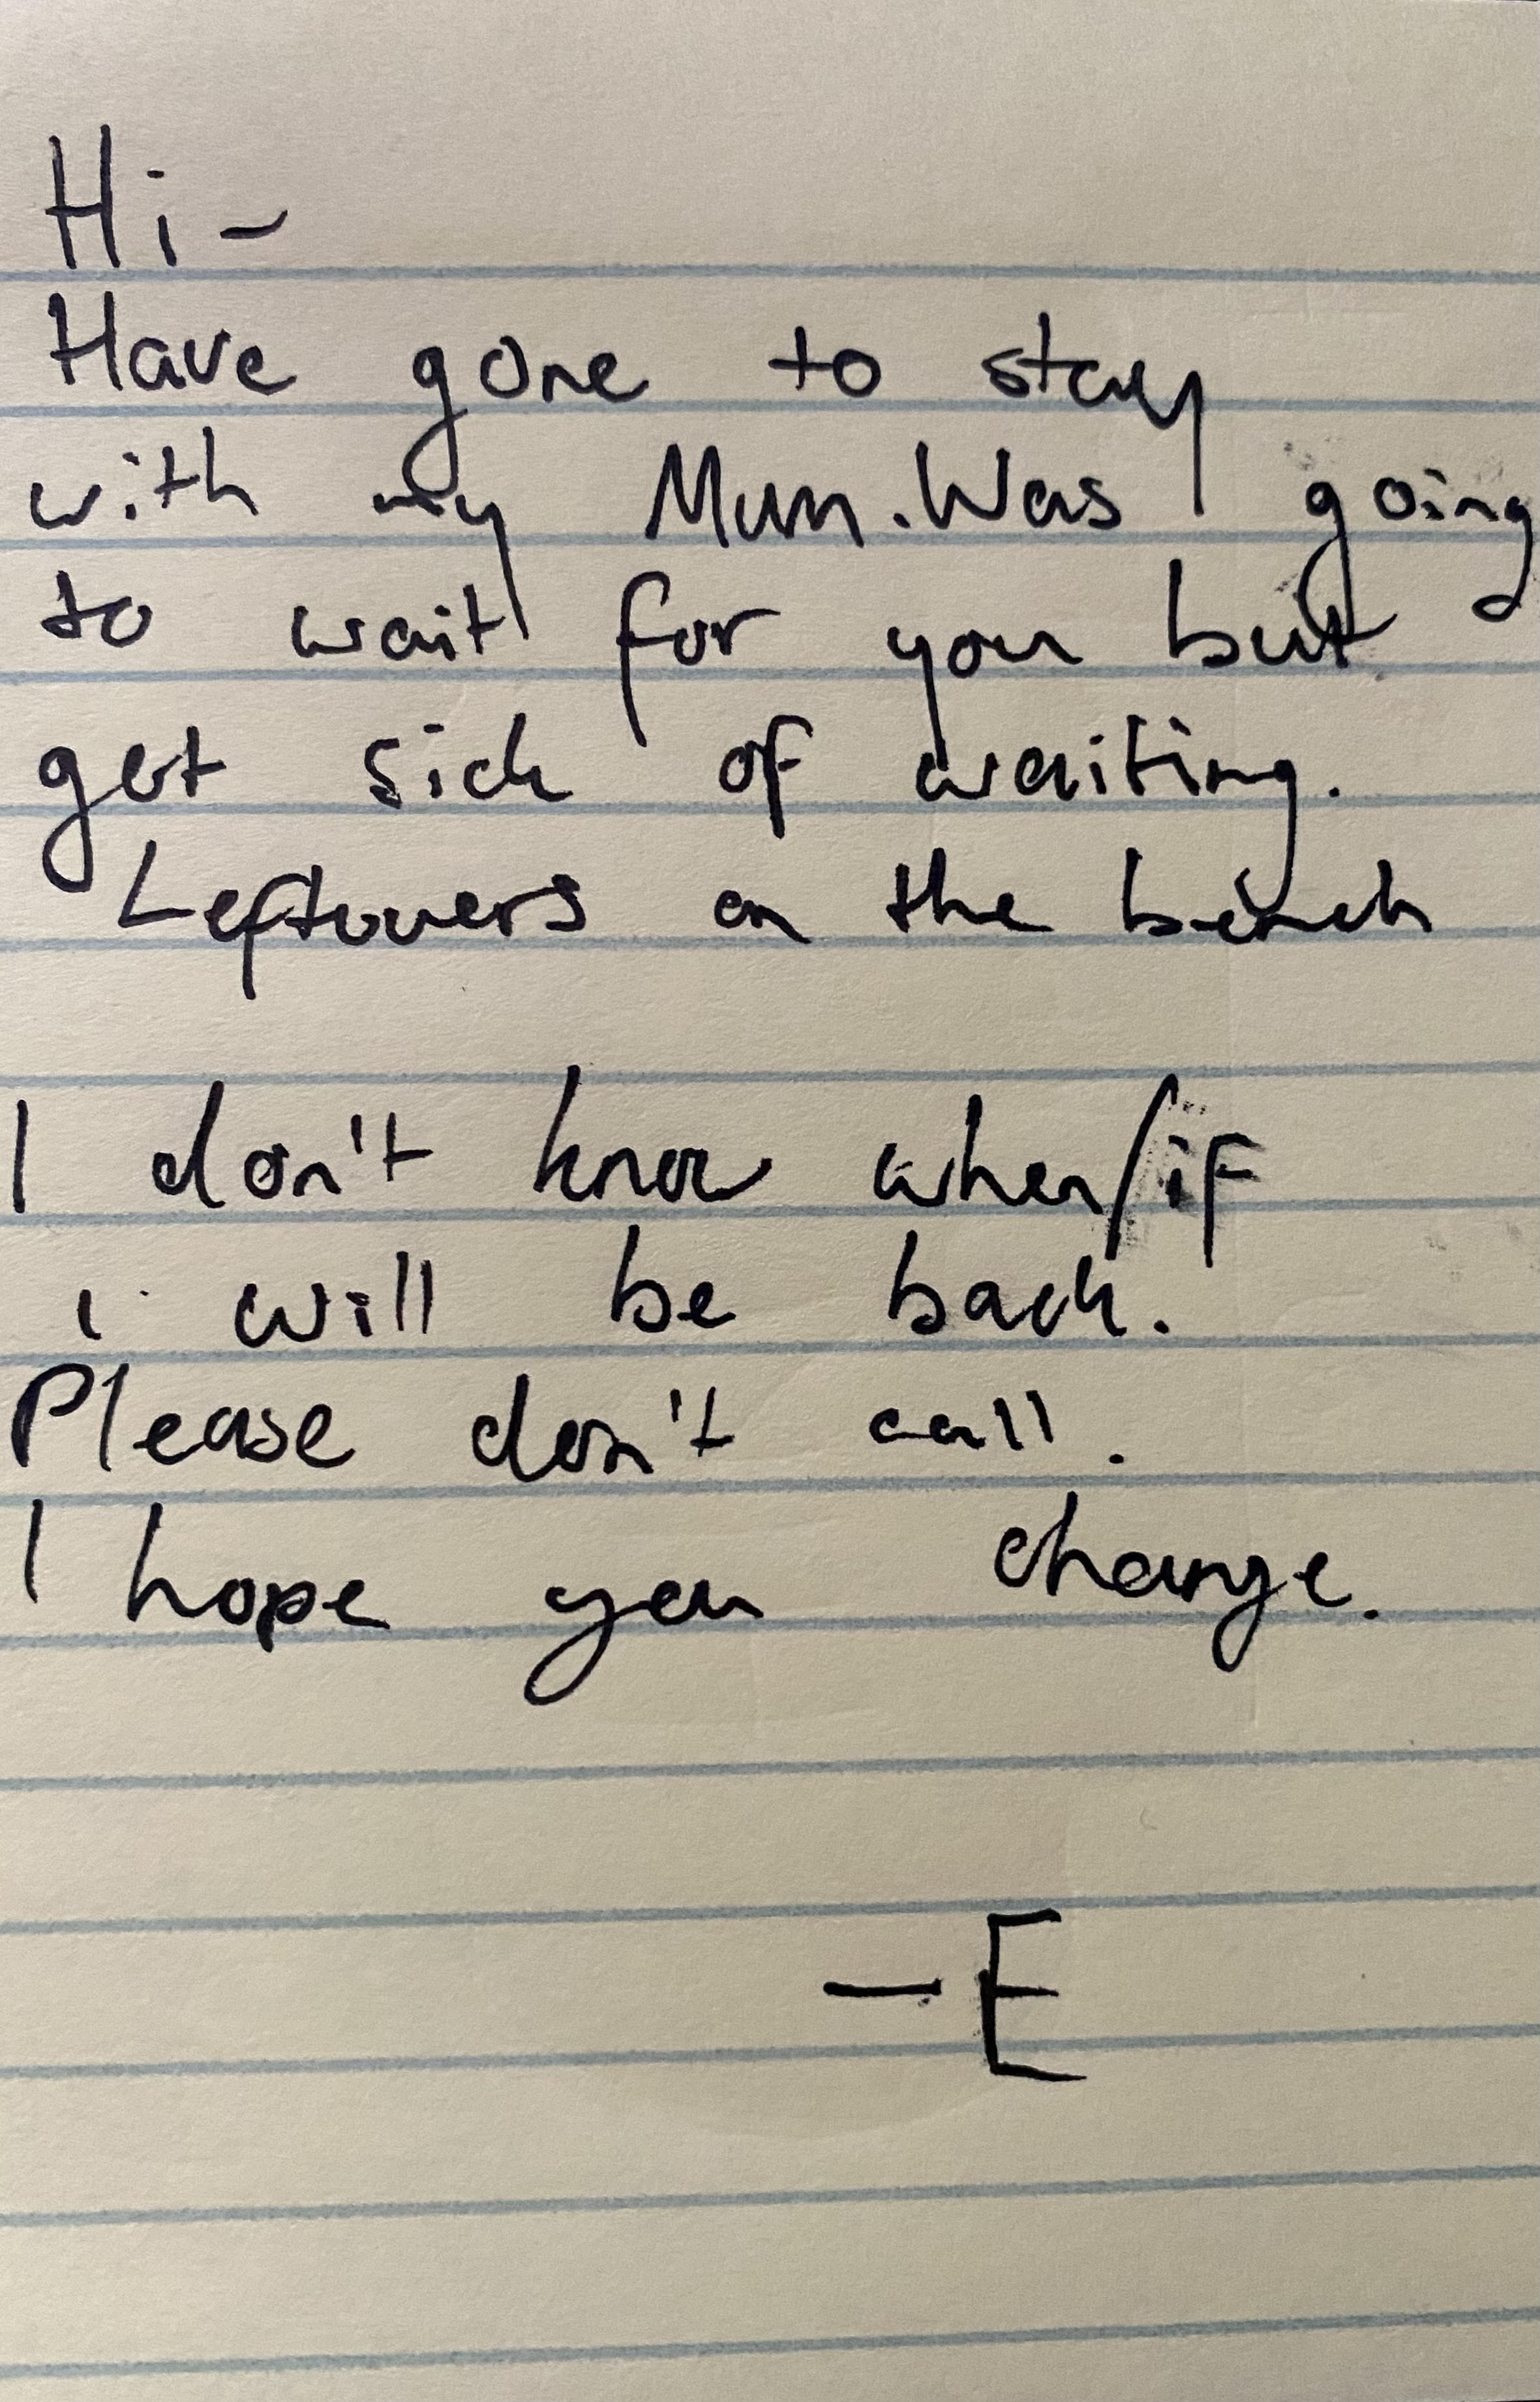 Hi-
Have gone to stay
with my Mum. Was going
to wait for you but
get sick of waiting.
Leftovers on the bench
I don't know when/if
i will be back.
Please don't call.
I hope you change.
-E